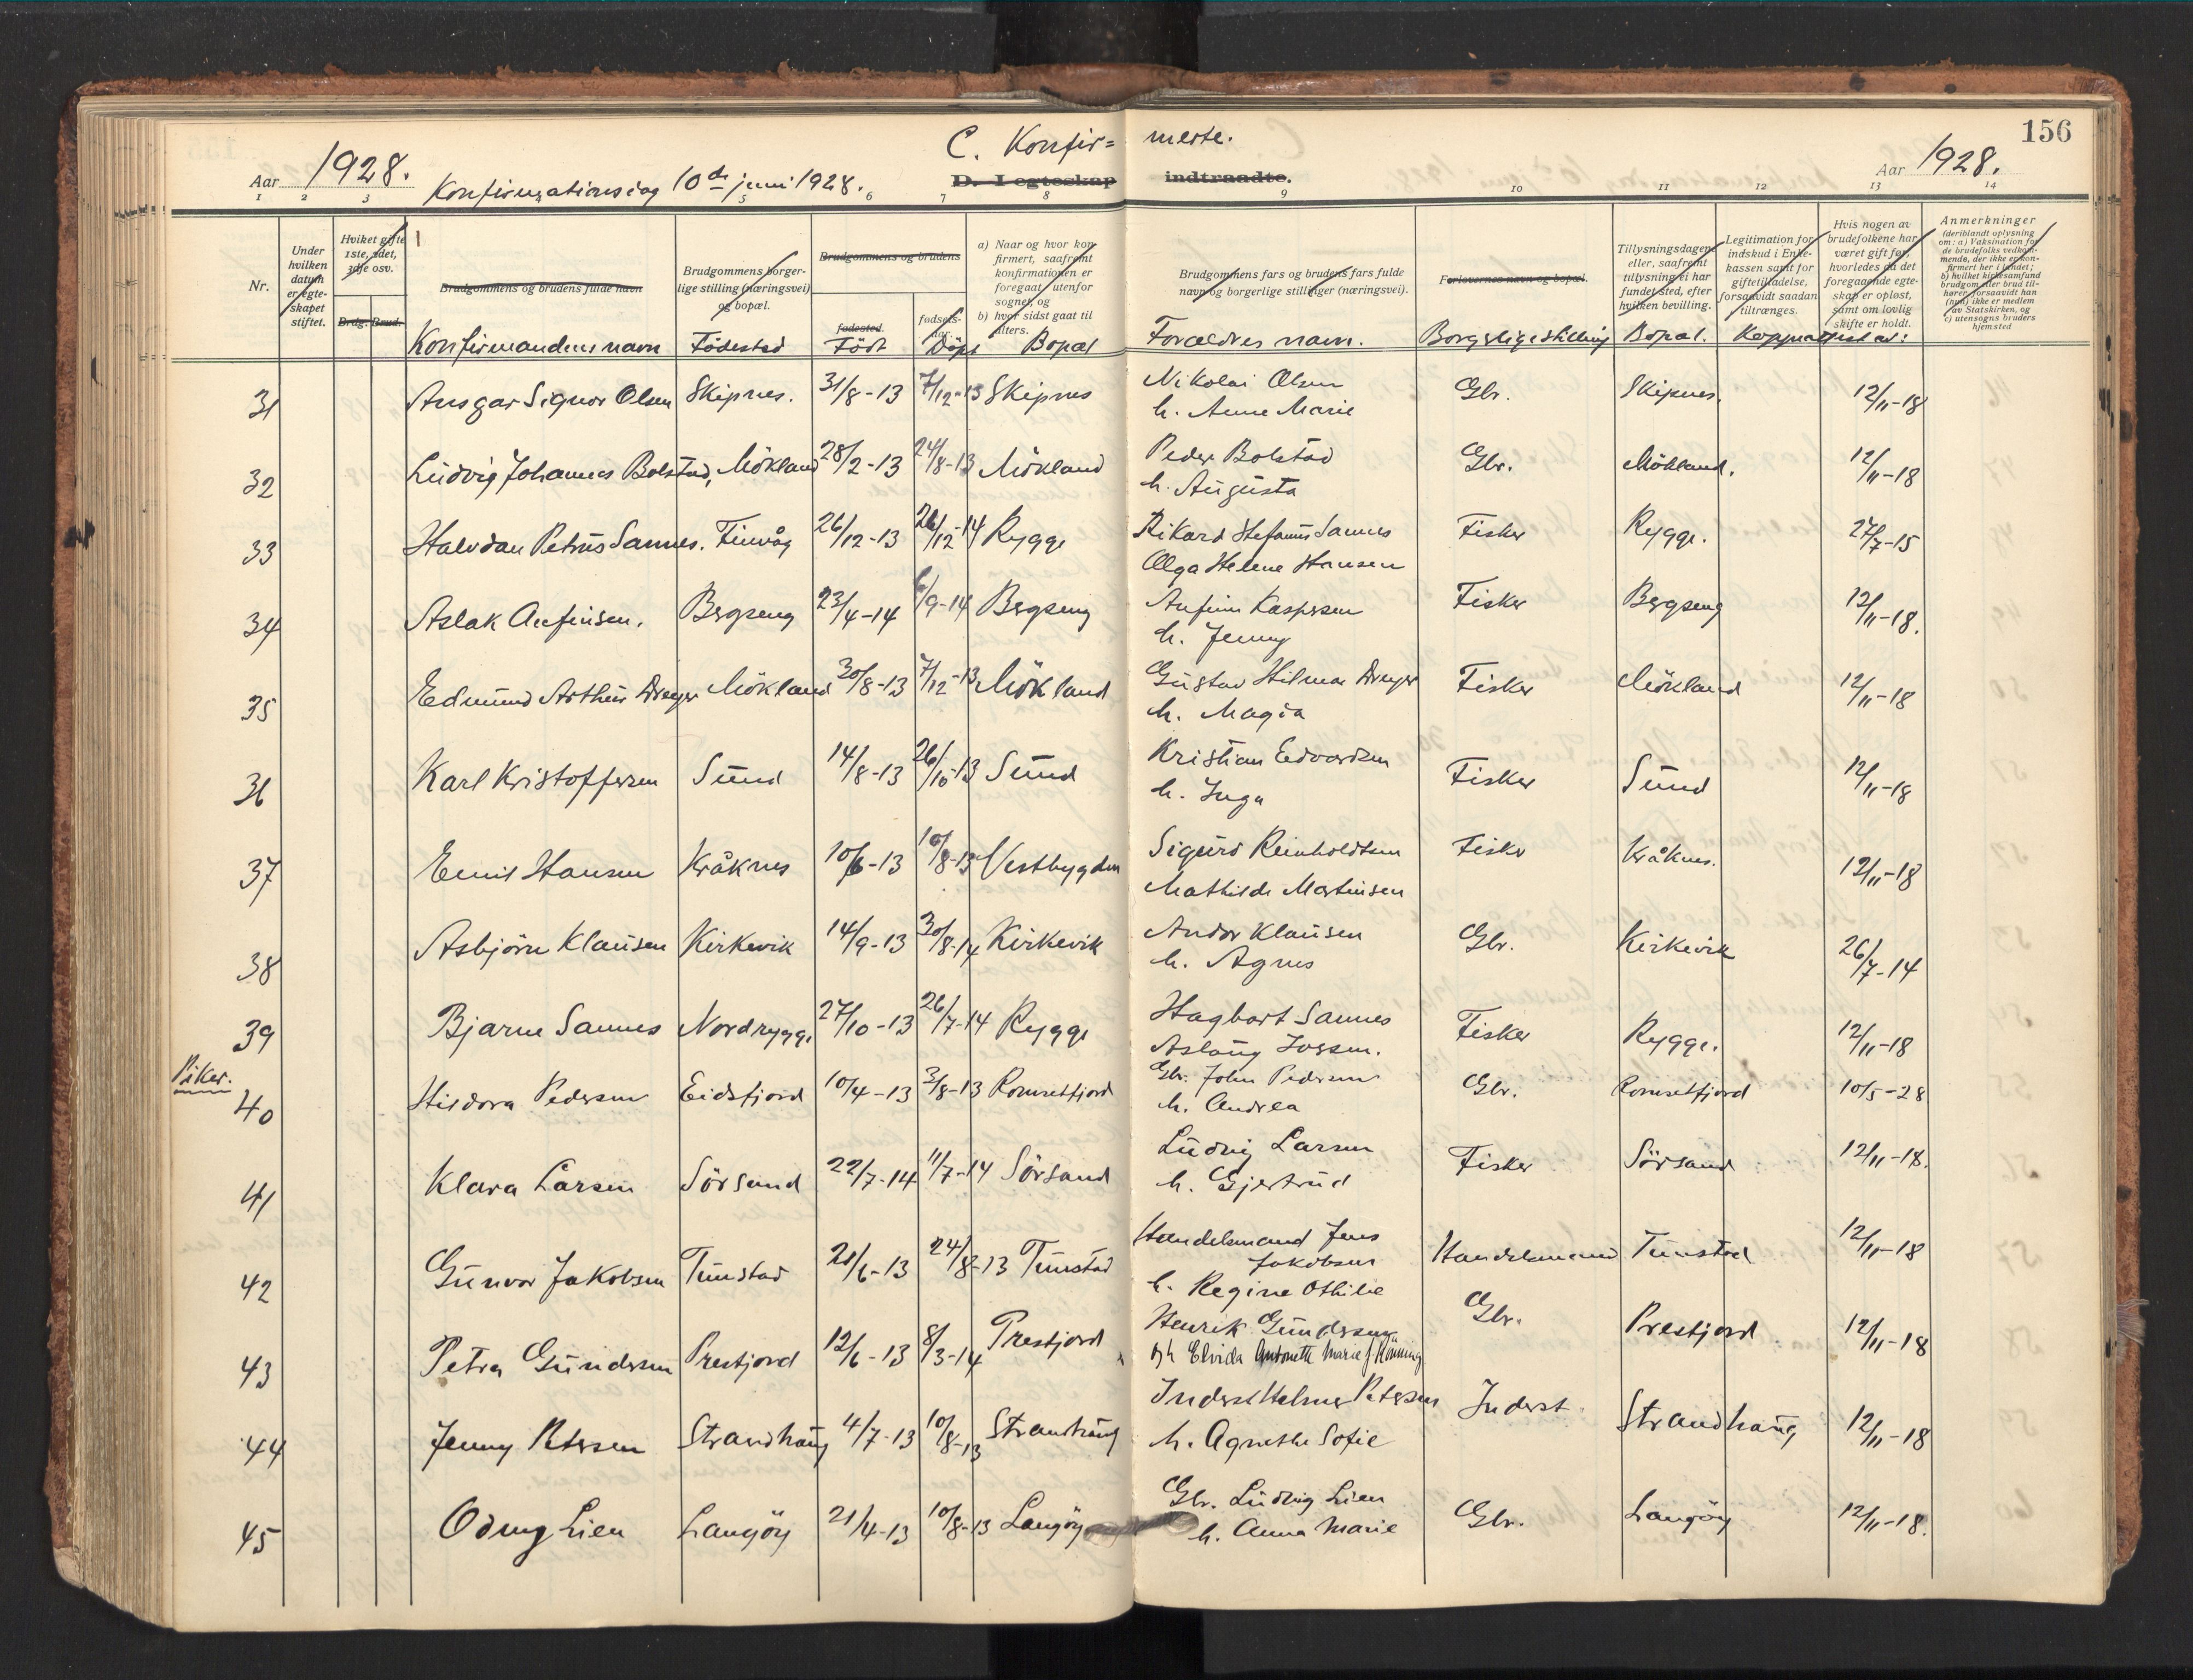 C. Konfir= merte.
156
Aar 1928. Konfirmationsdag 10de juni 1928. D. Egteskap indtraadte. Aar 1928.
1 2 3 4 5 6 7 8 9 10 11 12 13 14
Nr.
Under hvilken datum er egteskapet stiftet.
Hvilket gifte 1ste, 2det, 3dje osv.
Brdg. Brud.
Brudgommens og brudens fulde navn
Brudgommens borgerlige stilling (næringsvei) og bopæl.
Brudgommens og brudens
fødested. fødselsaar.
a) Naar og hvor konfirmert, saafremt konfirmationen er foregaat utenfor sognet, og
b) hvor sidst gaat til alters.
Brudgommens fars og brudens fars fulde navn og borgerlige stillinger (næringsvei).
Forlovernes navn og bopæl.
Tillysningsdagen eller, saafremt tillysning ei har fundet sted, efter hvilken bevilling.
Legitimation for indskud i Enkekassen samt for giftetilladelse, forsaavidt saadan tiltrænges.
Hvis nogen av brudefolkene har været gift før, hvorledes da det foregaaende egteskap er opløst, samt om lovlig skifte er holdt.
Anmerkninger (deriblandt oplysning om: a) Vaksination for de brudefolks vedkommende, der ikke er konfirmert her i landet; b) hvilket kirkesamfund brudgom eller brud tilhører, forsaavidt han (hun) ikke er medlem av Statskirken, og c) utensogns bruders hjemsted
Konfirmandens navn Födested Födt Döpt Bopæl Forældres navn. Borgerlige stilling Bopæl. Koppeattest av:
31 Ansgar Signor Olsen Skipnes. 31/8-13 7/12-13 Skipnes Nikolai Olsen Gbr. Skipnes. 12/11-18
h. Anne Marie
32 Ludvig Johannes Bolstad, Mökland 28/2-13 24/8-13 Mökland Peder Bolstad Gbr. Mökland. 12/11-18
h. Augusta
33 Halvdan Petrus Sannes. Finvåg 26/12-13 26/12-14 Rygge Rikard Stefanus Sannes Fisker Rygge. 27/7-15
Olga Helene Hansen
34 Aslak Anfinsen. Bergseng 23/4-14 6/9-14 Bergseng Anfinn Kaspersen Fisker Bergseng 12/11-18.
h. Jenny
35 Edmund Arthur Dreyer Mökland 30/8-13 7/12-13 Mökland Gustav Hilmar Dreyer Fisker Mökland 12/11-18
h. Magda
36 Karl Kristoffersen Sund 14/8-13 26/10-13 Sund Kristian Edvardsen Fisker Sund 12/11-18
h. Inga
37 Emil Hansen Kråknes 10/6-13 10/8-13 Vestbygden Sigurd Reinholdtsen Fisker Kråknes. 12/11-18
Mathilde Martinsen
38 Asbjörn Klausen Kirkevik 14/9-13 30/8-14 Kirkevik Andor Klausen Gbr. Kirkevik 26/7-14
h. Agnes
39 Bjarne Sannes Nordrygge 27/10-13 26/7-14 Rygge Hagbart Sannes Fisker Rygge. 12/11-18
Aslaug Iversen.
Piker.
40 Hildora Pedersen Eidsfjord 10/4-13 3/8-13 Romsetfjord Gbr. John Pedersen Gbr. Romsetfjord 10/5-28
h. Andrea
41 Klara Larsen Sörsand 22/7-14 11/7-14 Sörsand Ludvig Larsen Fisker Sörsand 12/11-18.
h. Gjertrud
42 Gunvor Jakobsen Tunstad 21/6-13 24/8-13 Tunstad Handelsmand Jens Handelsmand Tunstad 12/11-18
Jakobsen
h. Regine Othilie
43 Petra Gundersen Prestjord 12/6-13 8/3-14 Prestjord Henrik Gundersen Gbr. Prestjord 12/11-18
h Elvida Antonette Marie f. Konning
44 Jenny Petersen Strandhaug 4/7-13 10/8-13 Strandhaug Inderst Helmer Petersen Inderst Strandhaug 12/11-18
h. Agnethe Sofie
45 Odny Lien Langöy 21/4-13 10/8-13 Langöy Gbr. Ludvig Lien Gbr. Langöy 12/11-18.
h. Anna Marie